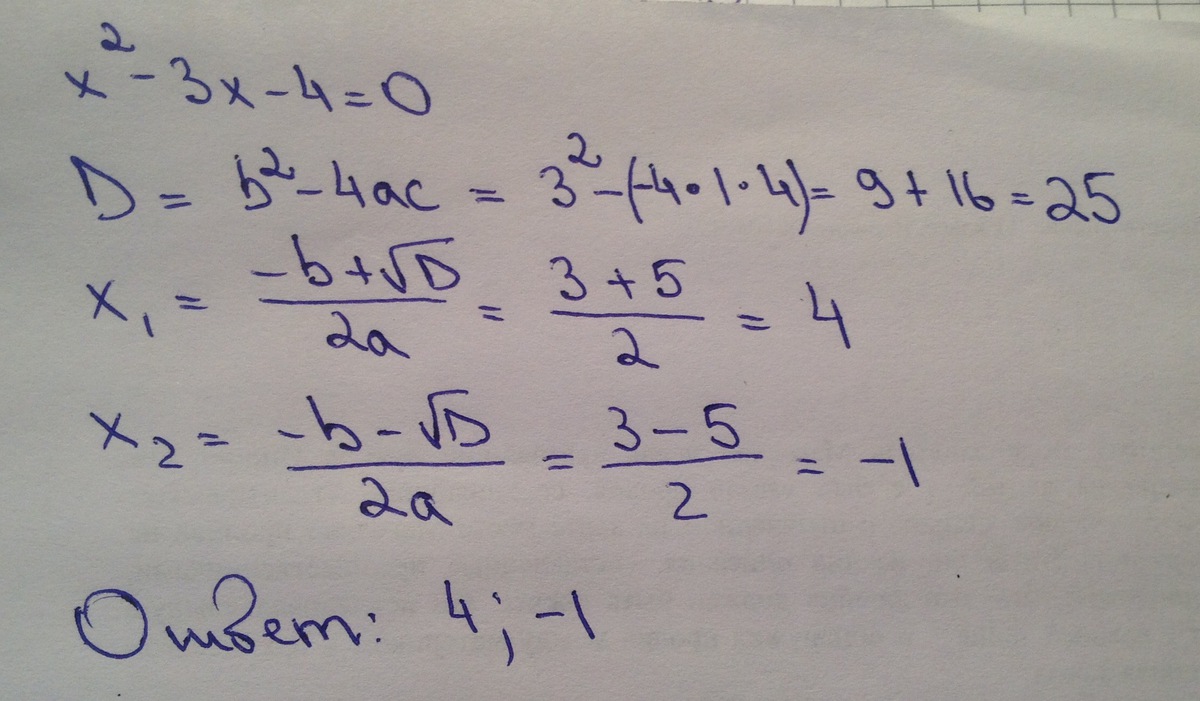 x² - 3x - 4 = 0
D = b² - 4ac = 3² - (-4·1·4) = 9 + 16 = 25
x₁ = (-b + √D)/(2a) = (3 + 5)/2 = 4
x₂ = (-b - √D)/(2a) = (3 - 5)/2 = -1
Ответ: 4; -1